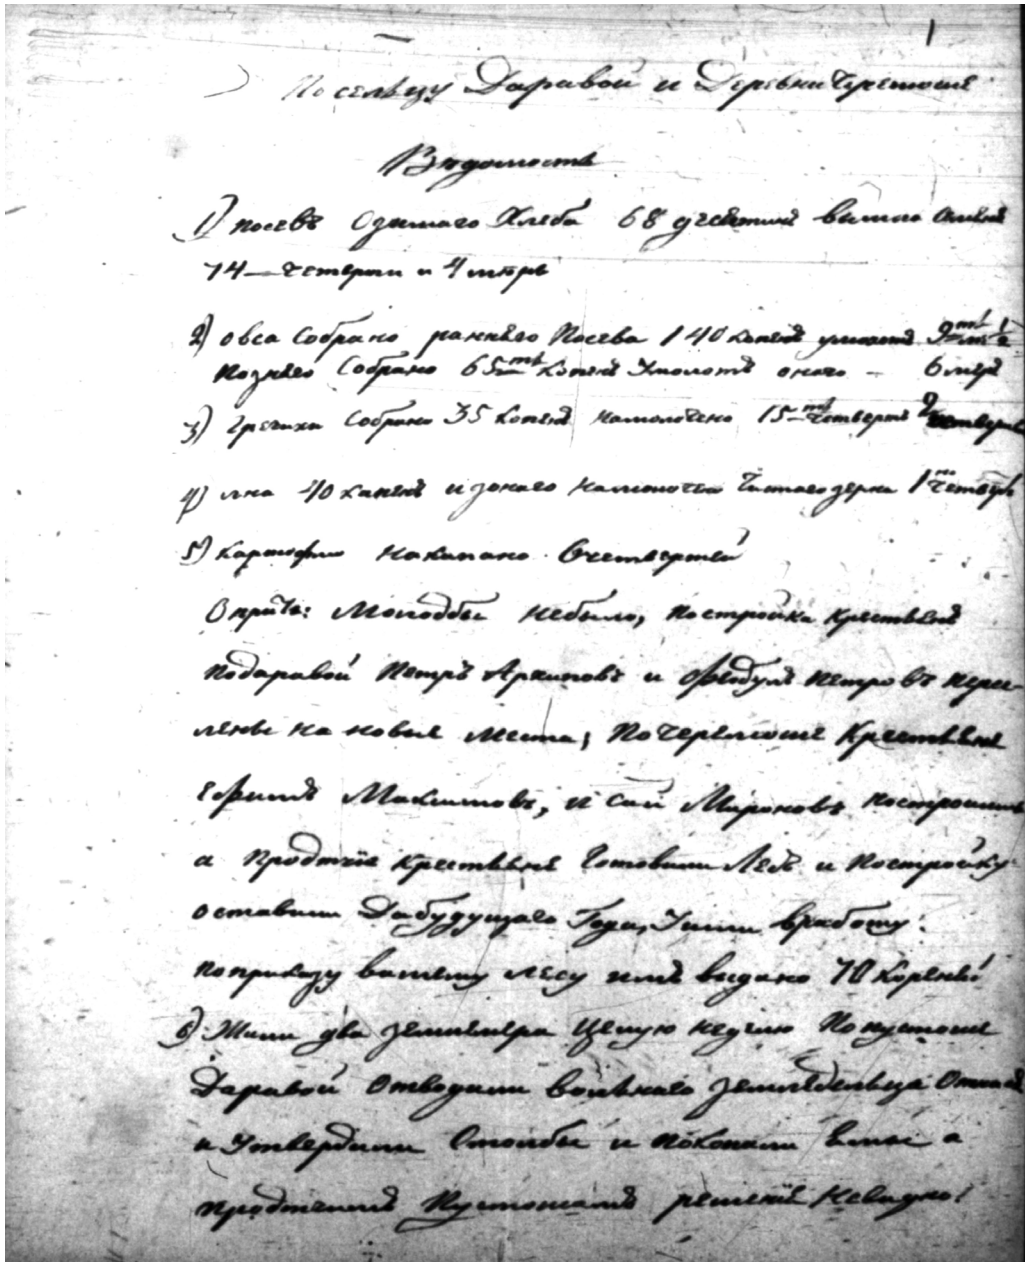 1
По сельцу Даравой и Деревни Черемошне
Вѣдомость
1) посевъ Озимаго Хлеба 68 десетинъ вышло Семянъ
74 — Четверти и 4 меры
2) овса Собрано раннѣго Посева 140 копенъ умолотъ
Позняго Собрано 65ть Копенъ Умолотъ онаго — 6 меръ
3) Гречихи Собрано 35 Копенъ Намолочено 15ть Четвертей 2 четверика
4) лна 40 капенъ изонаго намолочено Чистаго зерна 1 Четверть
5) Картофлю Накапано 6 четвертей
Опричь: Молодбы небыло, постройка крестьянъ
подаравой Петръ Архиповъ и Федулъ Петровъ пересе-
лены на новые места, По Черемошне Крестьяне
Ефимъ Максимовъ, и Сай Мироновъ построились
а Продтчие крестьяне Готовили Лесъ и Постройку
оставили Дабудущаго Года, Ушли вработу.
поприказу вашему лесу имъ выдано 70 Кореньев
6) Жили два землемера Целую неделю По пустоше
Даравой Отводили вольнаго землѣдельца Отмеже
и Утвердили Столбы и покопали ямы а
продтчимъ Пустошамъ решение Невидно!